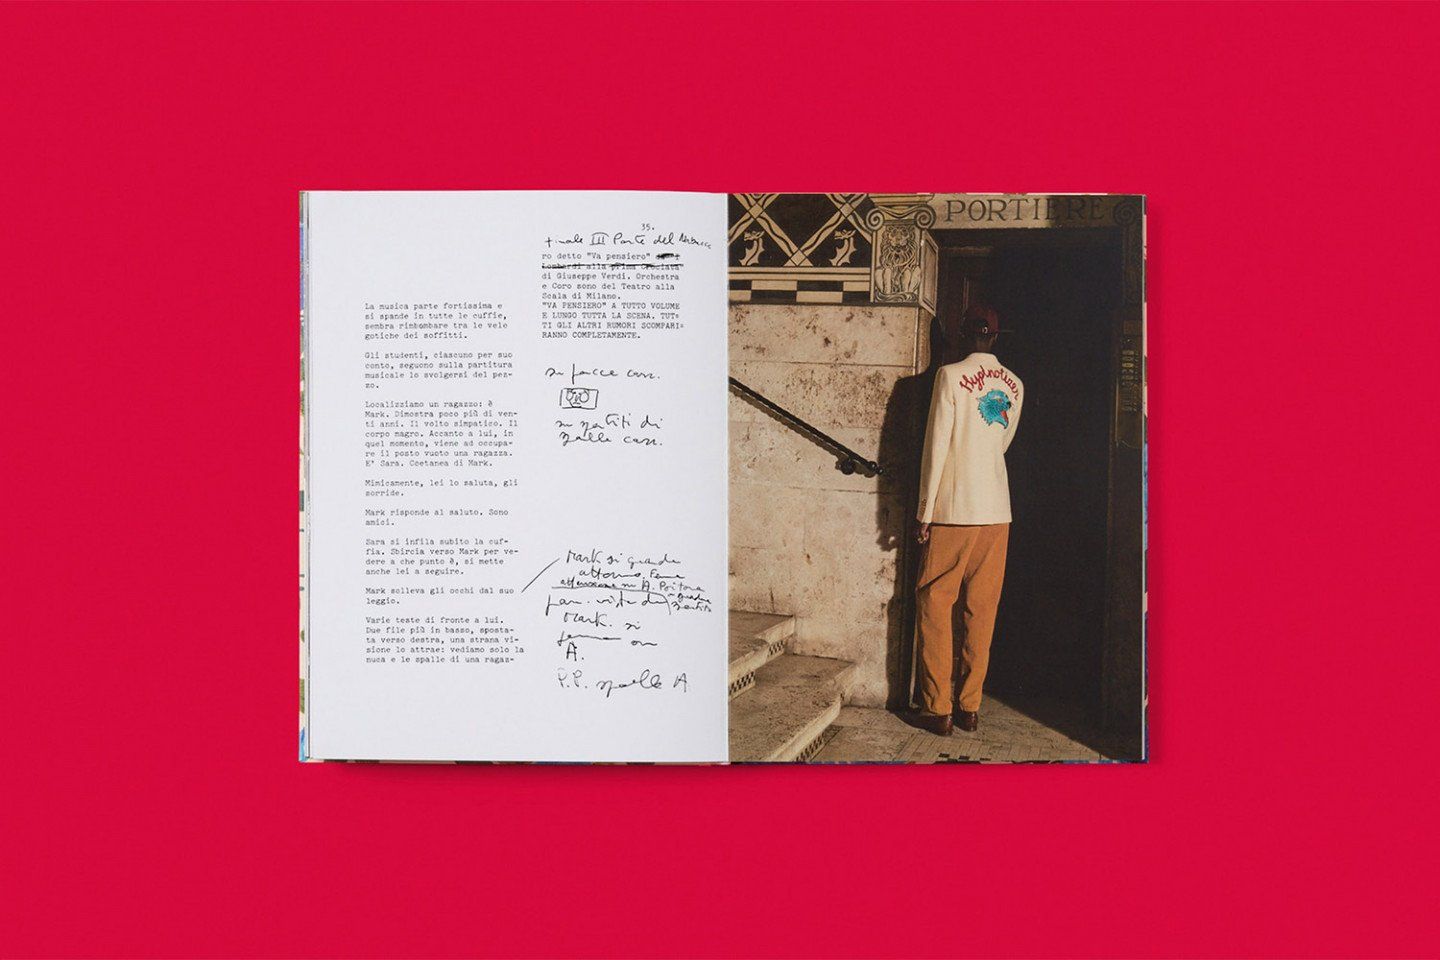 La musica parte fortissima e
si spande in tutte le cuffie,
sembra rimbombare tra le vele
gotiche dei soffitti.
Gli studenti, ciascuno per suo
conto, seguono sulla partitura
musicale lo svolgersi del pez-
zo.
Localizziamo un ragazzo: è
Mark. Dimostra poco più di ven-
ti anni. Il volto simpatico. Il
corpo magro. Accanto a lui, in
quel momento, viene ad occupa-
re il posto vuoto una ragazza.
E' Sara. Coetanea di Mark.
Mimicamente, lei lo saluta, gli
sorride.
Mark risponde al saluto. Sono
amici.
Sara si infila subito la cuf-
fia. Sbircia verso Mark per ve-
dere a che punto è, si mette
anche lei a seguire.
Mark solleva gli occhi dal suo
leggio.
Varie teste di fronte a lui.
Due file più in basso, sposta-
ta verso destra, una strana vi-
sione lo attrae: vediamo solo la
nuca e le spalle di una ragaz-
35.
finale III Parte del
ro detto "Va pensiero"
Lombardi alla prima Crociata
di Giuseppe Verdi. Orchestra
e Coro sono del Teatro alla
Scala di Milano.
"VA PENSIERO" A TUTTO VOLUME
E LUNGO TUTTA LA SCENA. TUT=
TI GLI ALTRI RUMORI SCOMPARI=
RANNO COMPLETAMENTE.
su facce carr.
su spartiti di
spalle carr.
Mark si guarda
attorno. Ferma
attenzione su A.
Mark. si
ferma on
A.
P.P. spalle A
PORTIERE
Hypnotizer